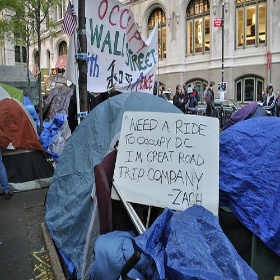 OCCUPY
WALL STREET
NEED A RIDE
TO OCCUPY D.C.
I'M GREAT ROAD
TRIP COMPANY
-ZACH